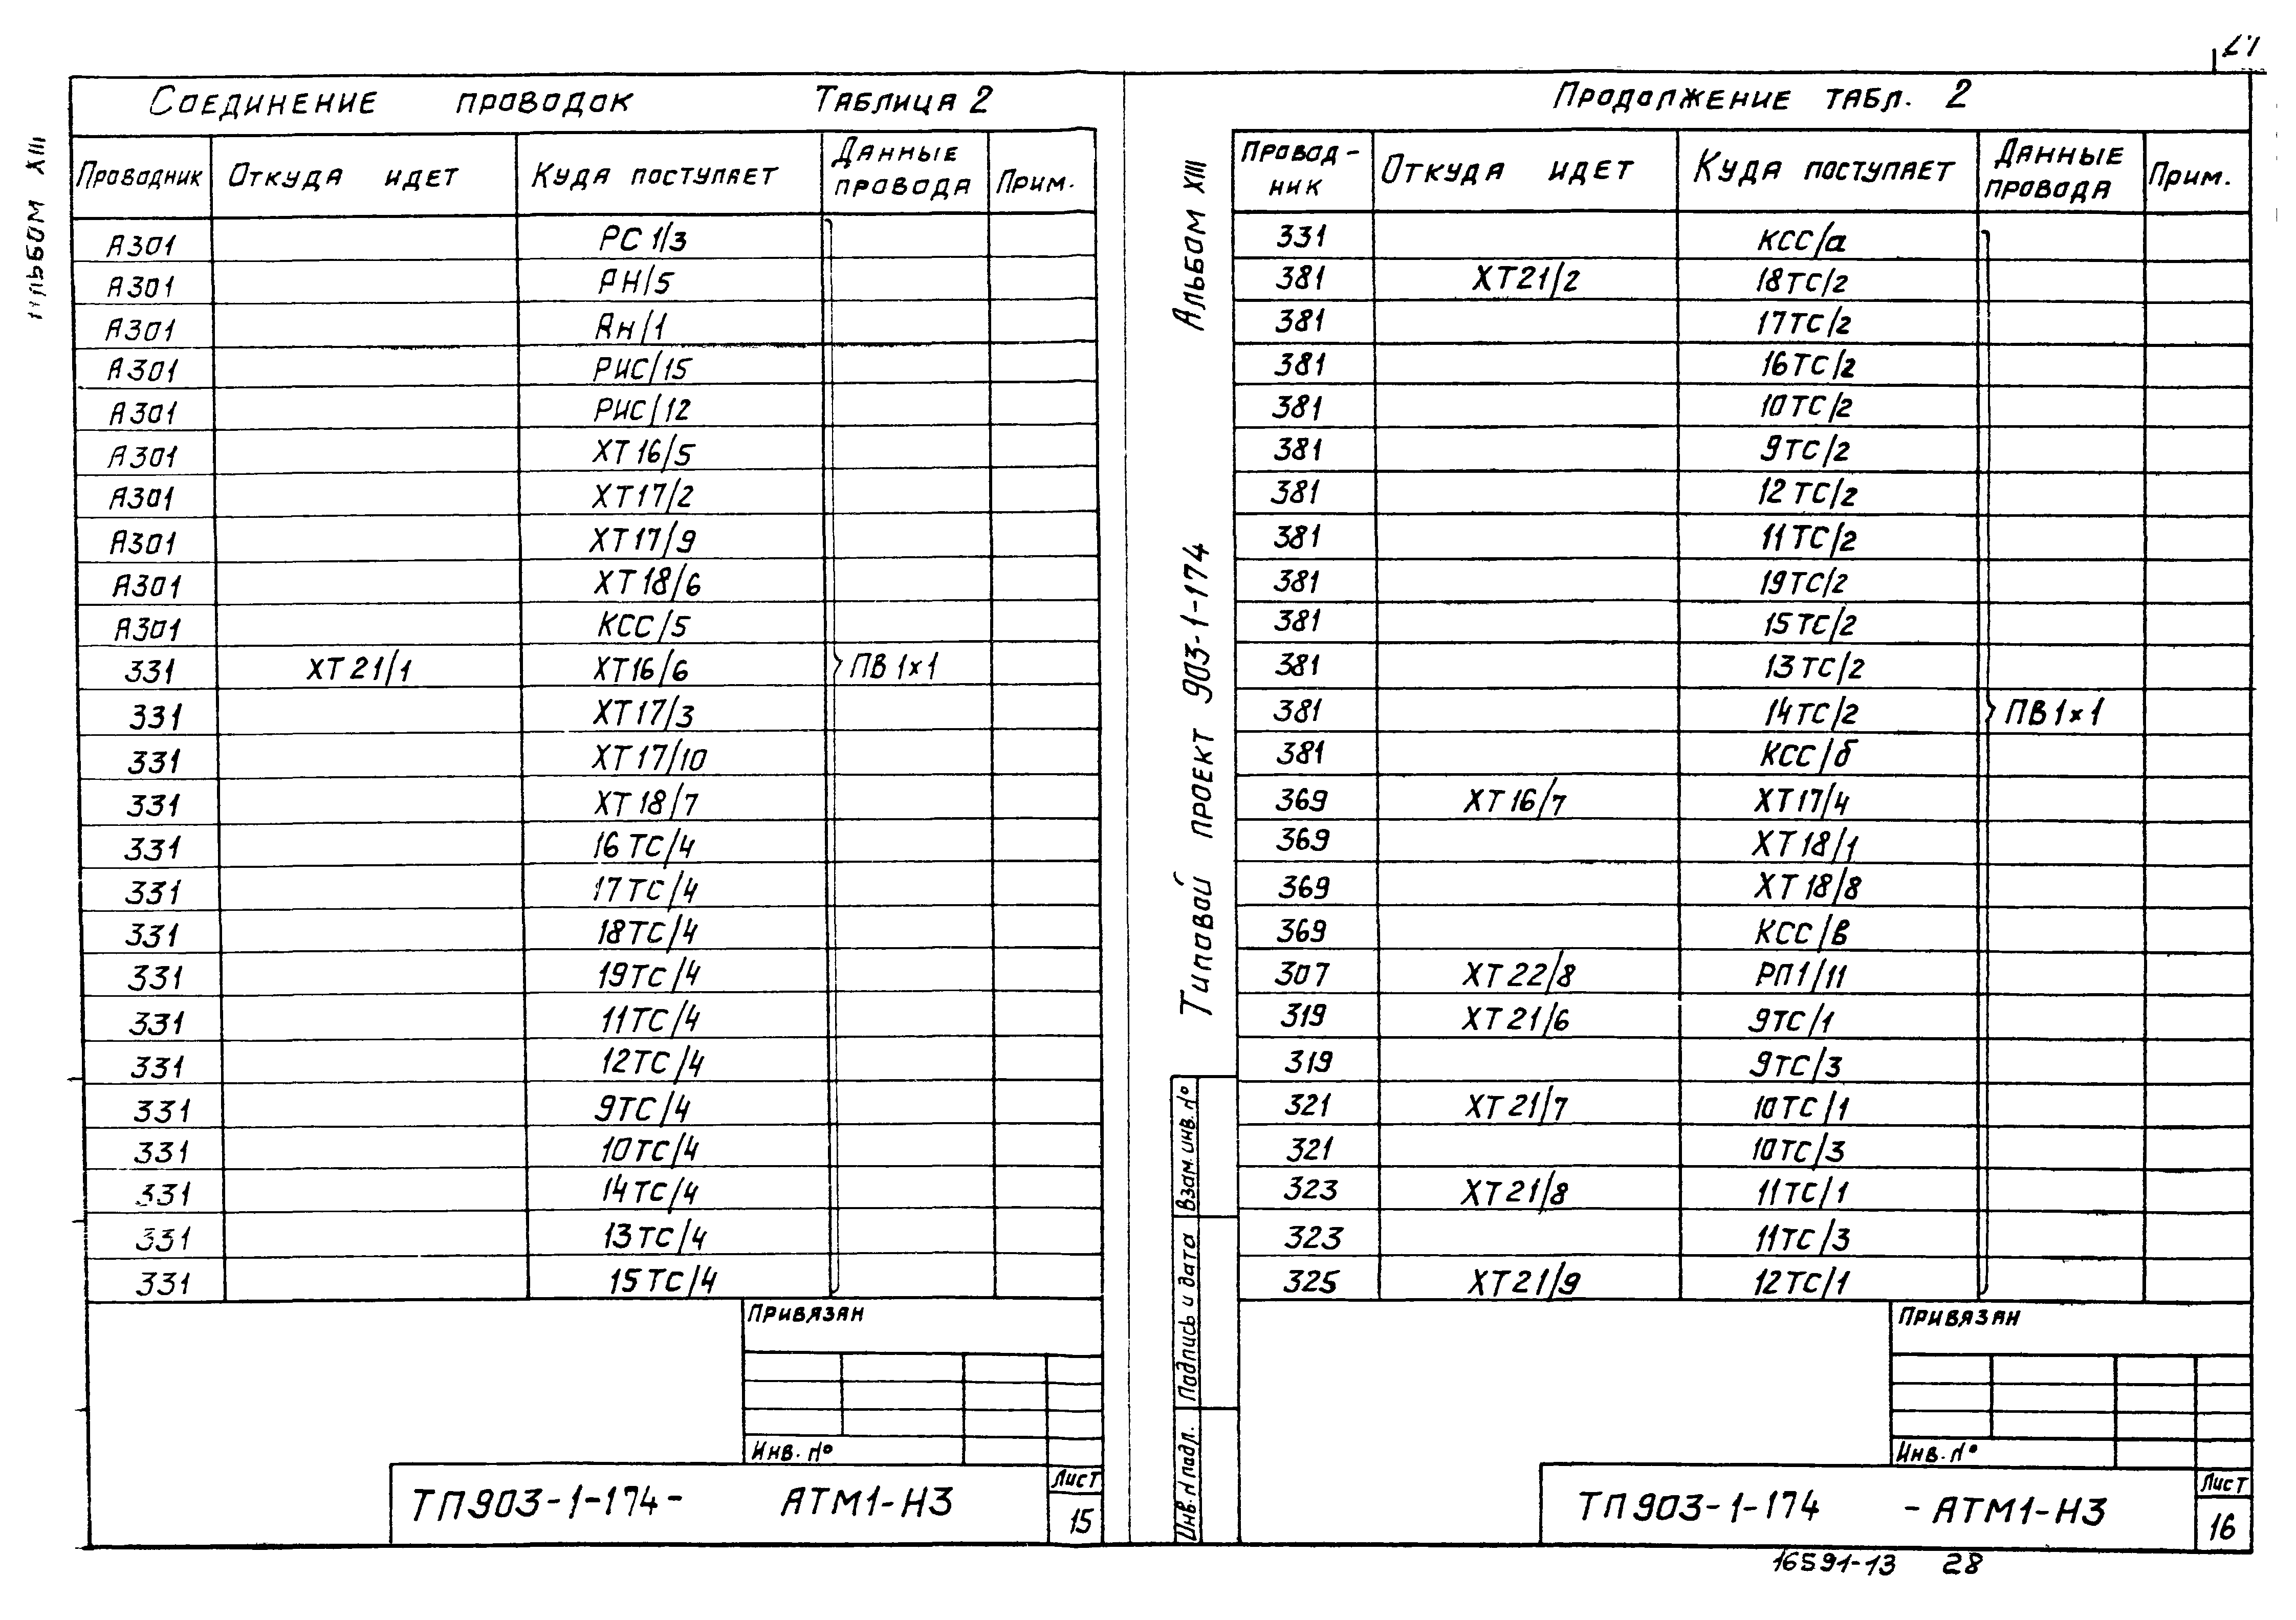 Альбом XIII
Соединение проводок Таблица 2
Проводник Откуда идет Куда поступает Данные провода Прим.
А301 РС 1/3
А301 РН/5
А301 Ян/1
А301 РИС/15
А301 РИС/12
А301 ХТ16/5
А301 ХТ17/2
А301 ХТ17/9
А301 ХТ18/6
А301 КСС/5
331 ХТ21/1 ХТ16/6 ПВ 1×1
331 ХТ17/3
331 ХТ17/10
331 ХТ18/7
331 16ТС/4
331 17ТС/4
331 18ТС/4
331 19ТС/4
331 11ТС/4
331 12ТС/4
331 9ТС/4
331 10ТС/4
331 14ТС/4
331 13ТС/4
331 15ТС/4
Привязан
Инв. №
ТП903-1-174- АТМ1-Н3
Лист
15
Альбом XIII
Типовой проект 903-1-174
Взам. инв. №
Подпись и дата
Инв. № подл.
Продолжение табл. 2
Провод-
ник Откуда идет Куда поступает Данные провода Прим.
331 КСС/а
381 ХТ21/2 18ТС/2
381 17ТС/2
381 16ТС/2
381 10ТС/2
381 9ТС/2
381 12ТС/2
381 11ТС/2
381 19ТС/2
381 15ТС/2
381 13ТС/2
381 14ТС/2 ПВ 1×1
381 КСС/б
369 ХТ16/7 ХТ17/4
369 ХТ18/1
369 ХТ18/8
369 КСС/в
307 ХТ22/8 РП1/11
319 ХТ21/6 9ТС/1
319 9ТС/3
321 ХТ21/7 10ТС/1
321 10ТС/3
323 ХТ21/8 11ТС/1
323 11ТС/3
325 ХТ21/9 12ТС/1
Привязан
Инв. №
ТП903-1-174 - АТМ1-Н3
Лист
16
16591-13 28